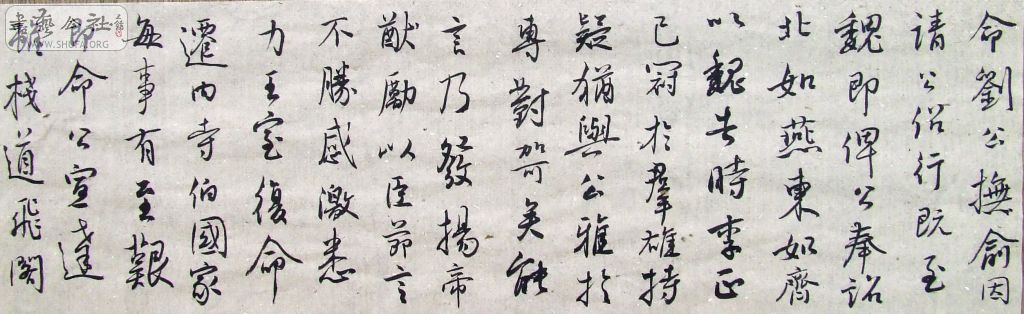 命劉公撫俞因
請公俗行既至
魏即俾公奉詔
北如燕東如齊
以魏告時李正
已冠於羣雄持
疑猶與公雅於
專對聆其能
言乃發揚帝
猷勵以臣節言
不勝感激悉
力王室復命
遷內寺伯國家
每事有至艱
即命公宣達
棧道飛閣
WWW.SHUFA.ORG